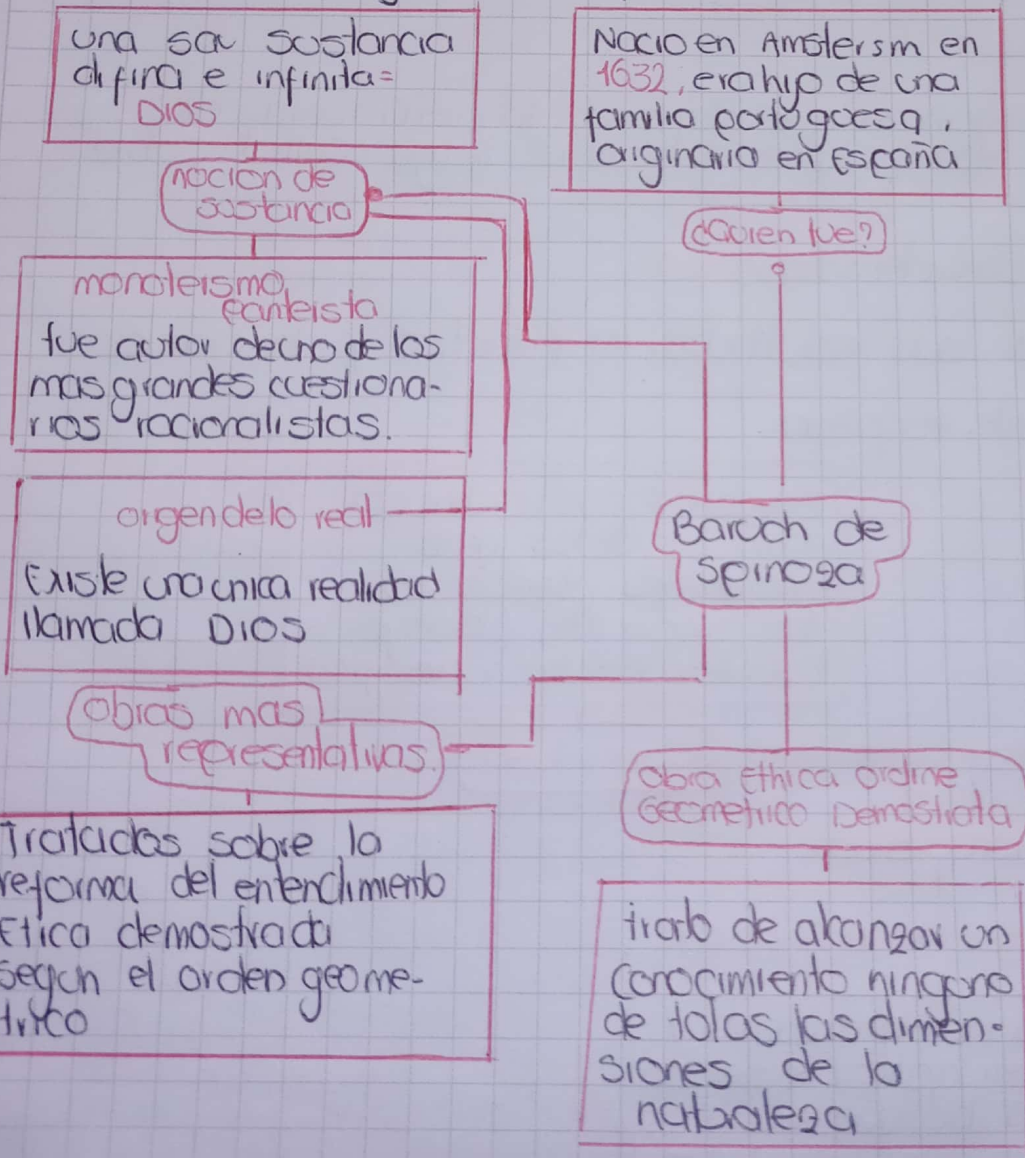 una sa sostancia
difina e infinita=
DIOS
nocion de
sostancia
monoteismo
panteista
fue autor de uno de los
mas grandes cuestiona-
rios racionalistas.
origen de lo real
Existe una unica realidad
llamada DIOS
Obras mas
representativas
Tratados sobre la
reforma del entendimiento
Etica demostrada
segun el orden geome-
trico
Nacio en Amstersm en
1632, era hijo de una
familia portoguesa,
originario en España
¿Quien fue?
Baruch de
Spinoza
Obra Ethica ordine
Geometrico Demostrata
trato de alcanzar un
conocimiento ninguno
de tolas las dimen-
siones de la
naturaleza